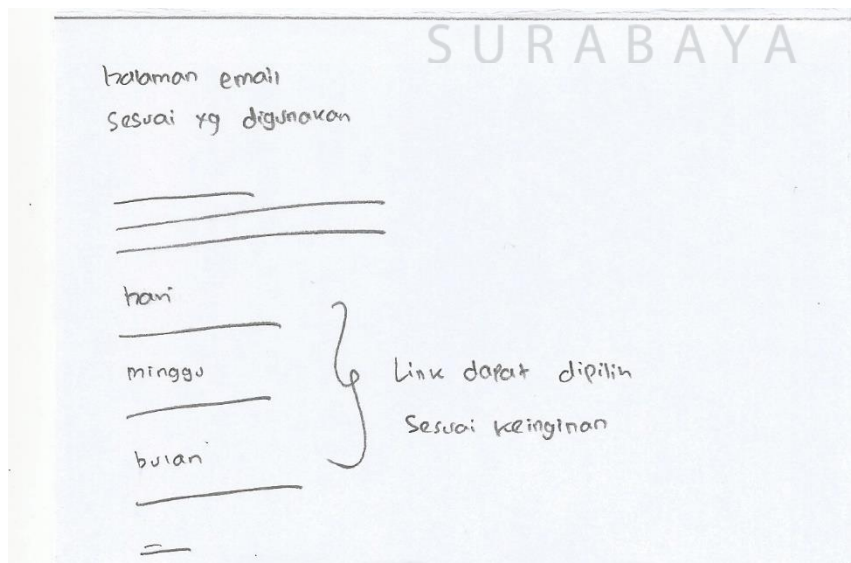 SURABAYA
halaman email
sesuai yg digunakan
hari
minggu
bulan
Link dapat dipilih
sesuai keinginan